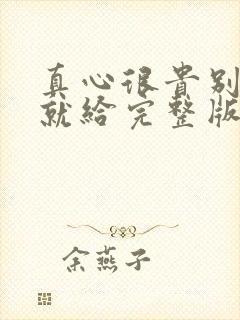 真心很貴別
就給完整版
余燕子